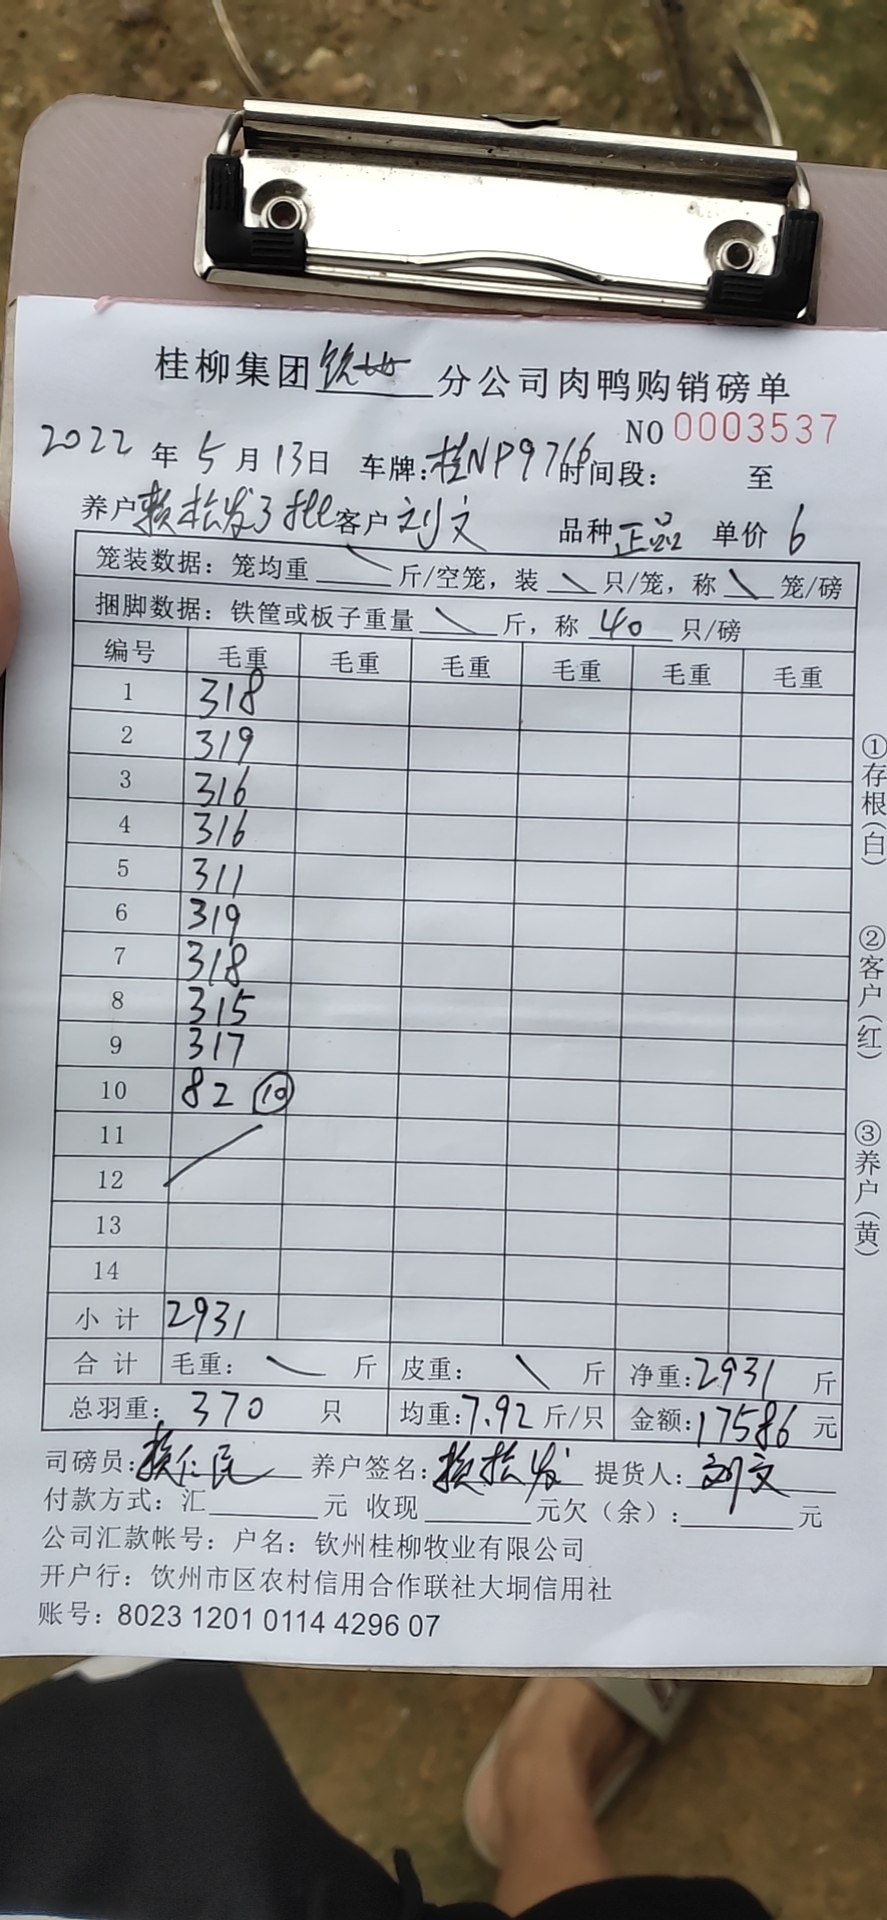 桂柳集团钦州分公司肉鸭购销磅单
NO 0003537
2022年5月13日 车牌:桂NP9766 时间段: 至
养户赖松发3批 客户刘文 品种正品 单价6
笼装数据: 笼均重 \ 斤/空笼, 装 \ 只/笼, 称 \ 笼/磅
捆脚数据: 铁筐或板子重量 \ 斤, 称 40 只/磅
编号 毛重 毛重 毛重 毛重 毛重 毛重
1 318
2 319
3 316
4 316
5 311
6 319
7 318
8 315
9 317
10 82 ⑩
11
12
13
14
小计 2931
合计 毛重: \ 斤 皮重: \ 斤 净重:2931 斤
总羽重: 370 只 均重:7.92 斤/只 金额:17586 元
司磅员:赖仁民 养户签名:赖松发 提货人:刘文
付款方式: 汇______元 收现______元欠(余):______元
公司汇款帐号: 户名: 钦州桂柳牧业有限公司
开户行: 钦州市区农村信用合作联社大垌信用社
账号: 8023 1201 0114 4296 07
①存根(白)
②客户(红)
③养户(黄)